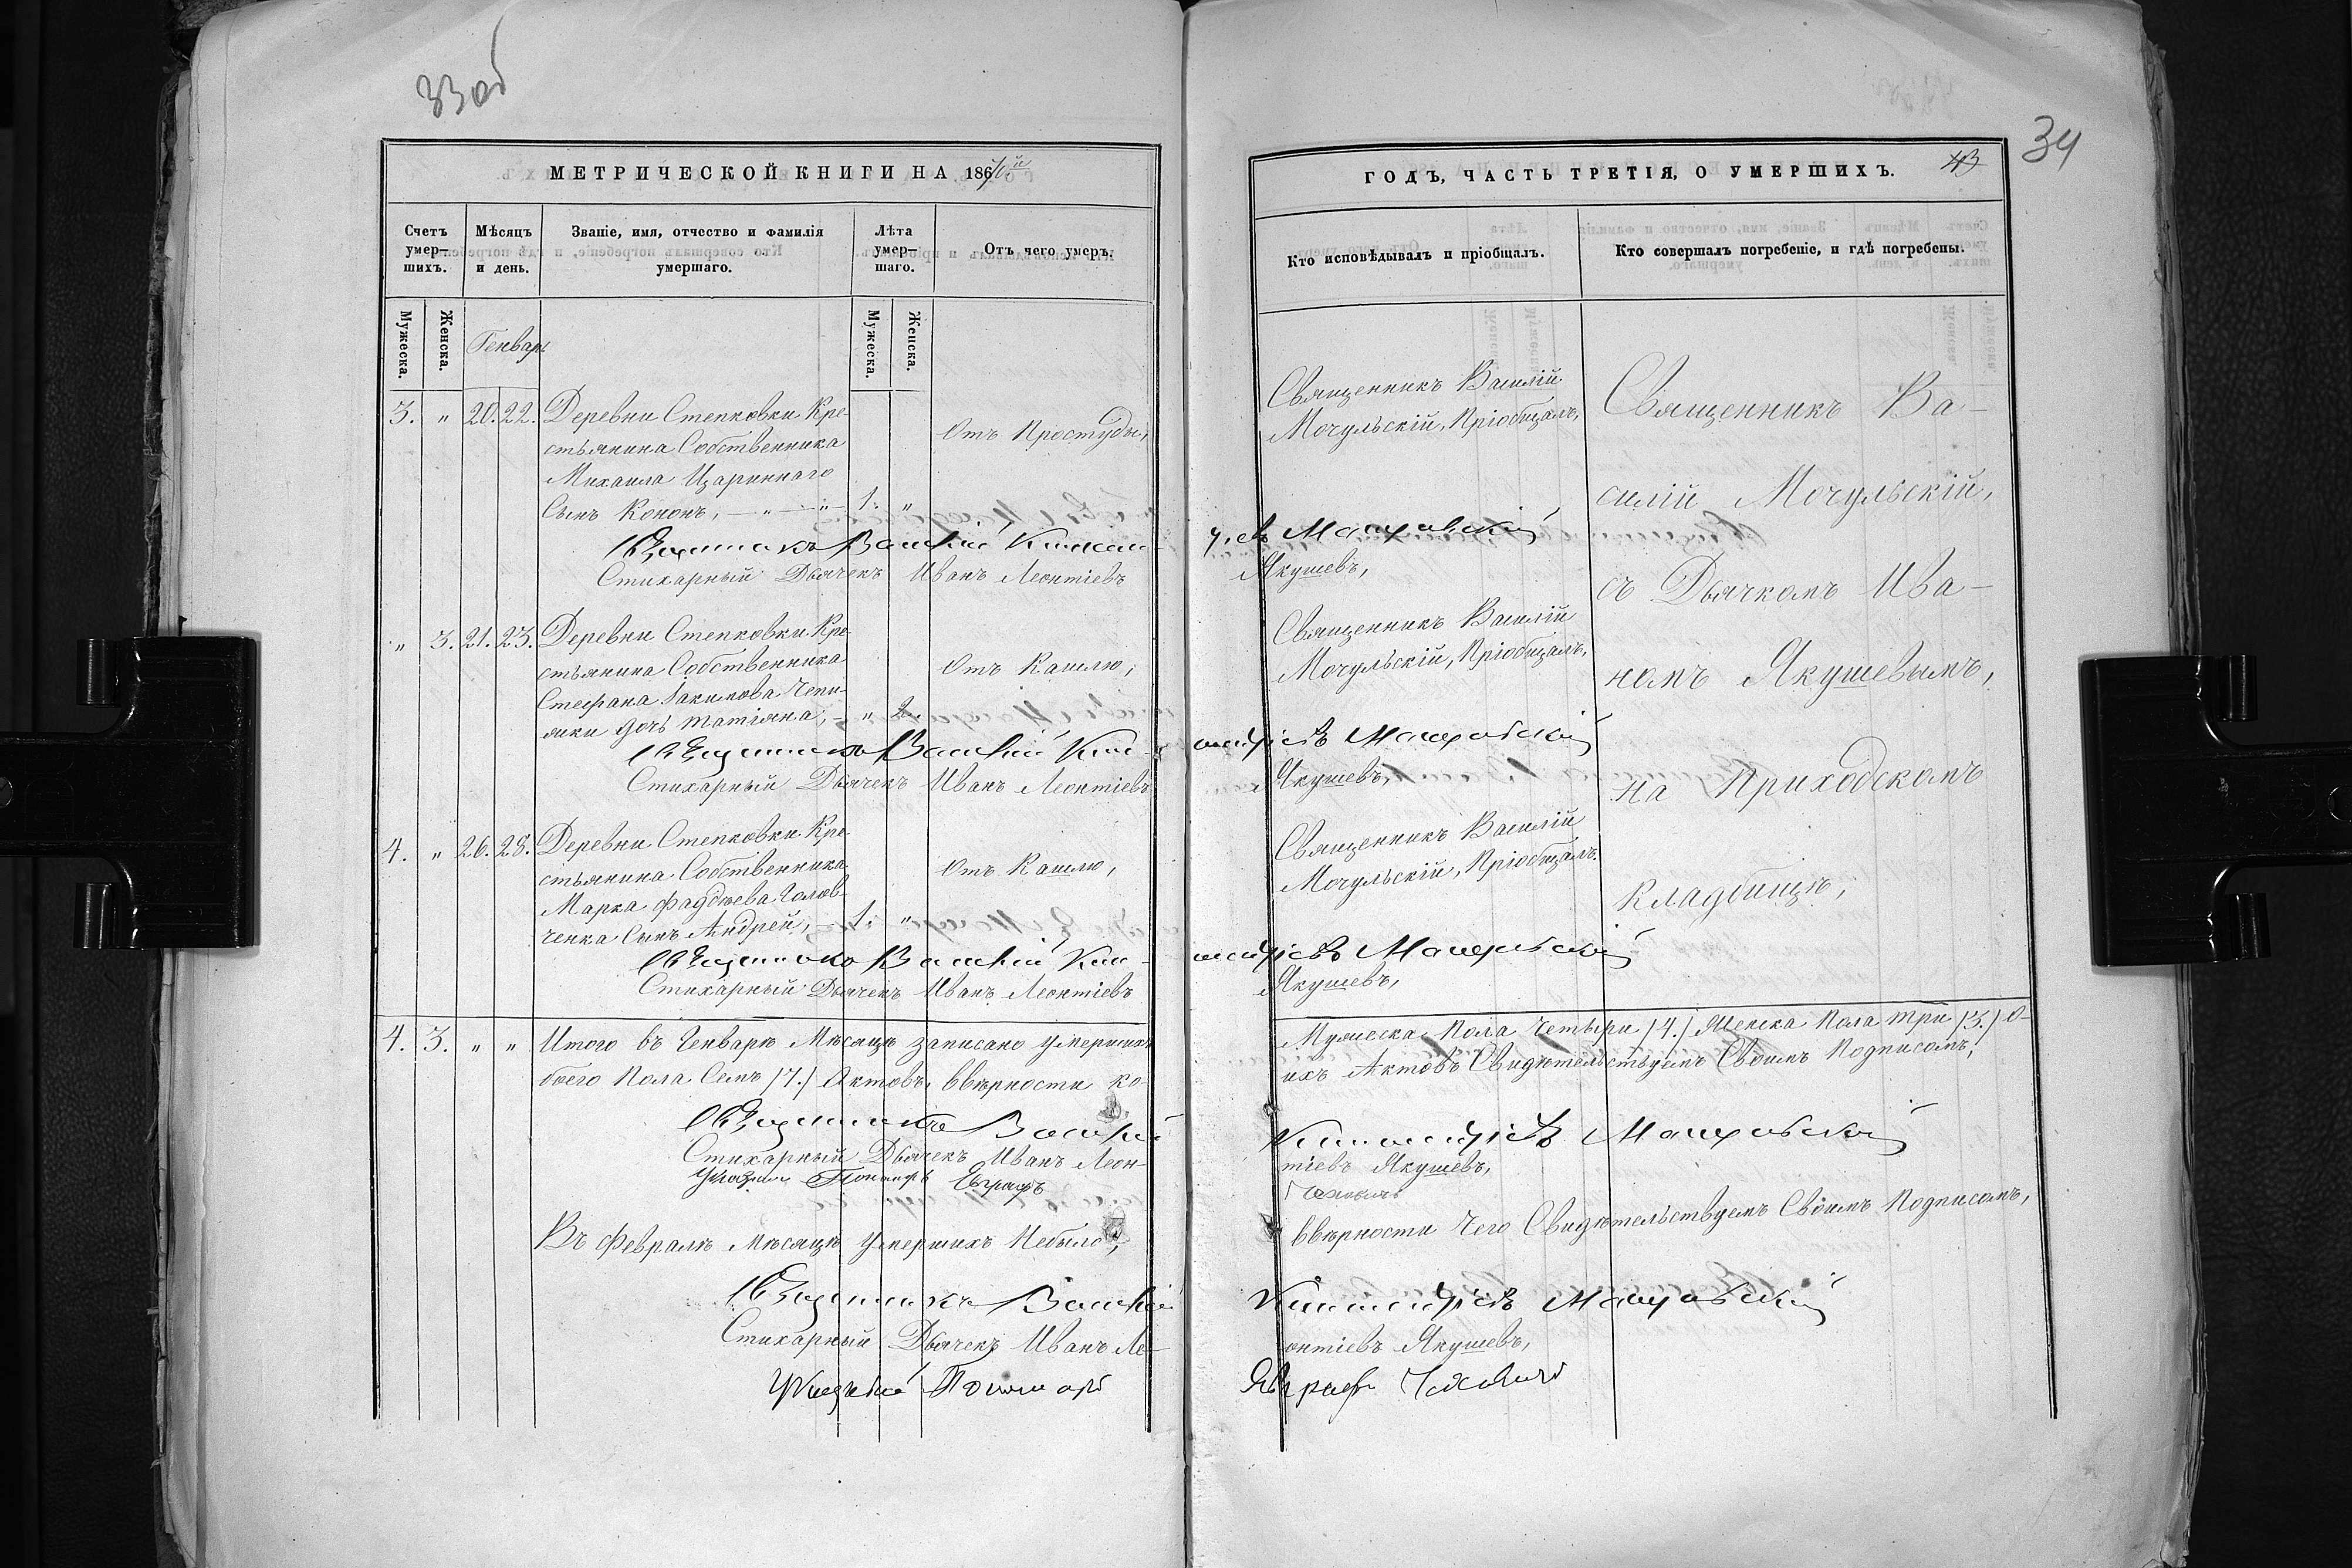 33об
МЕТРИЧЕСКОЙ КНИГИ НА 186
Счетъ умер-шихъ.
Мѣсяцъ и день.
Званіе, имя, отчество и фамилія умершаго.
Лѣта умер-шаго.
Отъ чего умеръ.
Мужеска.
Женска.
Генварь
Мужеска.
Женска.
3. " 20. 22. Деревни Степковки Кре-
стьянина Собственника
Михаила Царинного
Сынъ Кононъ, — " — " — 1. "
Отъ Простуды,
Священникъ Василій
Стихарный Дьячекъ Иванъ Леонтіевъ
" 3. 21. 23. Деревни Степковки Кре-
стьянина Собственника
Стефана Іакимова Чепи-
ли дочь Татіяна, — " 2.
Отъ Кашлю,
Священникъ Василій
Стихарный Дьячекъ Иванъ Леонтіевъ
4. " 26. 28. Деревни Степковки Кре-
стьянина Собственника
Марка Фаддѣева Голов-
ченка Сынъ Андрей, — 1. "
Отъ Кашлю,
Священникъ Василій
Стихарный Дьячекъ Иванъ Леонтіевъ
4. 3. " " Итого въ Генварѣ Мѣсяцѣ записано умершихъ
боего Пола Семъ /7./ Актовъ, ввѣрности ко-
Священникъ Василій
Стихарный Дьячекъ Иванъ Леон-
Пономарь Евграфъ
Въ Февралѣ Мѣсяцѣ умершихъ Небыло,
Священникъ Василій
Стихарный Дьячекъ Иванъ Ле-
Пономарь
34
43
ГОДЪ, ЧАСТЬ ТРЕТІЯ, О УМЕРШИХЪ.
Кто исповѣдывалъ и пріобщалъ.
Кто совершалъ погребеніе, и гдѣ погребены.
Священникъ Василій
Мочульскій, Пріобщалъ,
Мочульскій
Якушевъ,
Священникъ Василій
Мочульскій, Пріобщалъ,
Мочульскій
Якушевъ,
Священникъ Василій
Мочульскій, Пріобщалъ.
Мочульскій
Якушевъ,
Священникъ Ва-
силій Мочульскій,
съ Дьячкомъ Ива-
номъ Якушевымъ,
на Приходскомъ
Кладбищѣ,
Мужеска Пола Четыри /4./ Женска Пола три /3./ О-
ихъ Актовъ Свидѣтельствуемъ Своимъ Подписомъ,
Мочульскій
тіевъ Якушевъ,
ввѣрности Чего Свидѣтельствуемъ Своимъ Подписомъ,
Мочульскій
онтіевъ Якушевъ,
Евграфъ